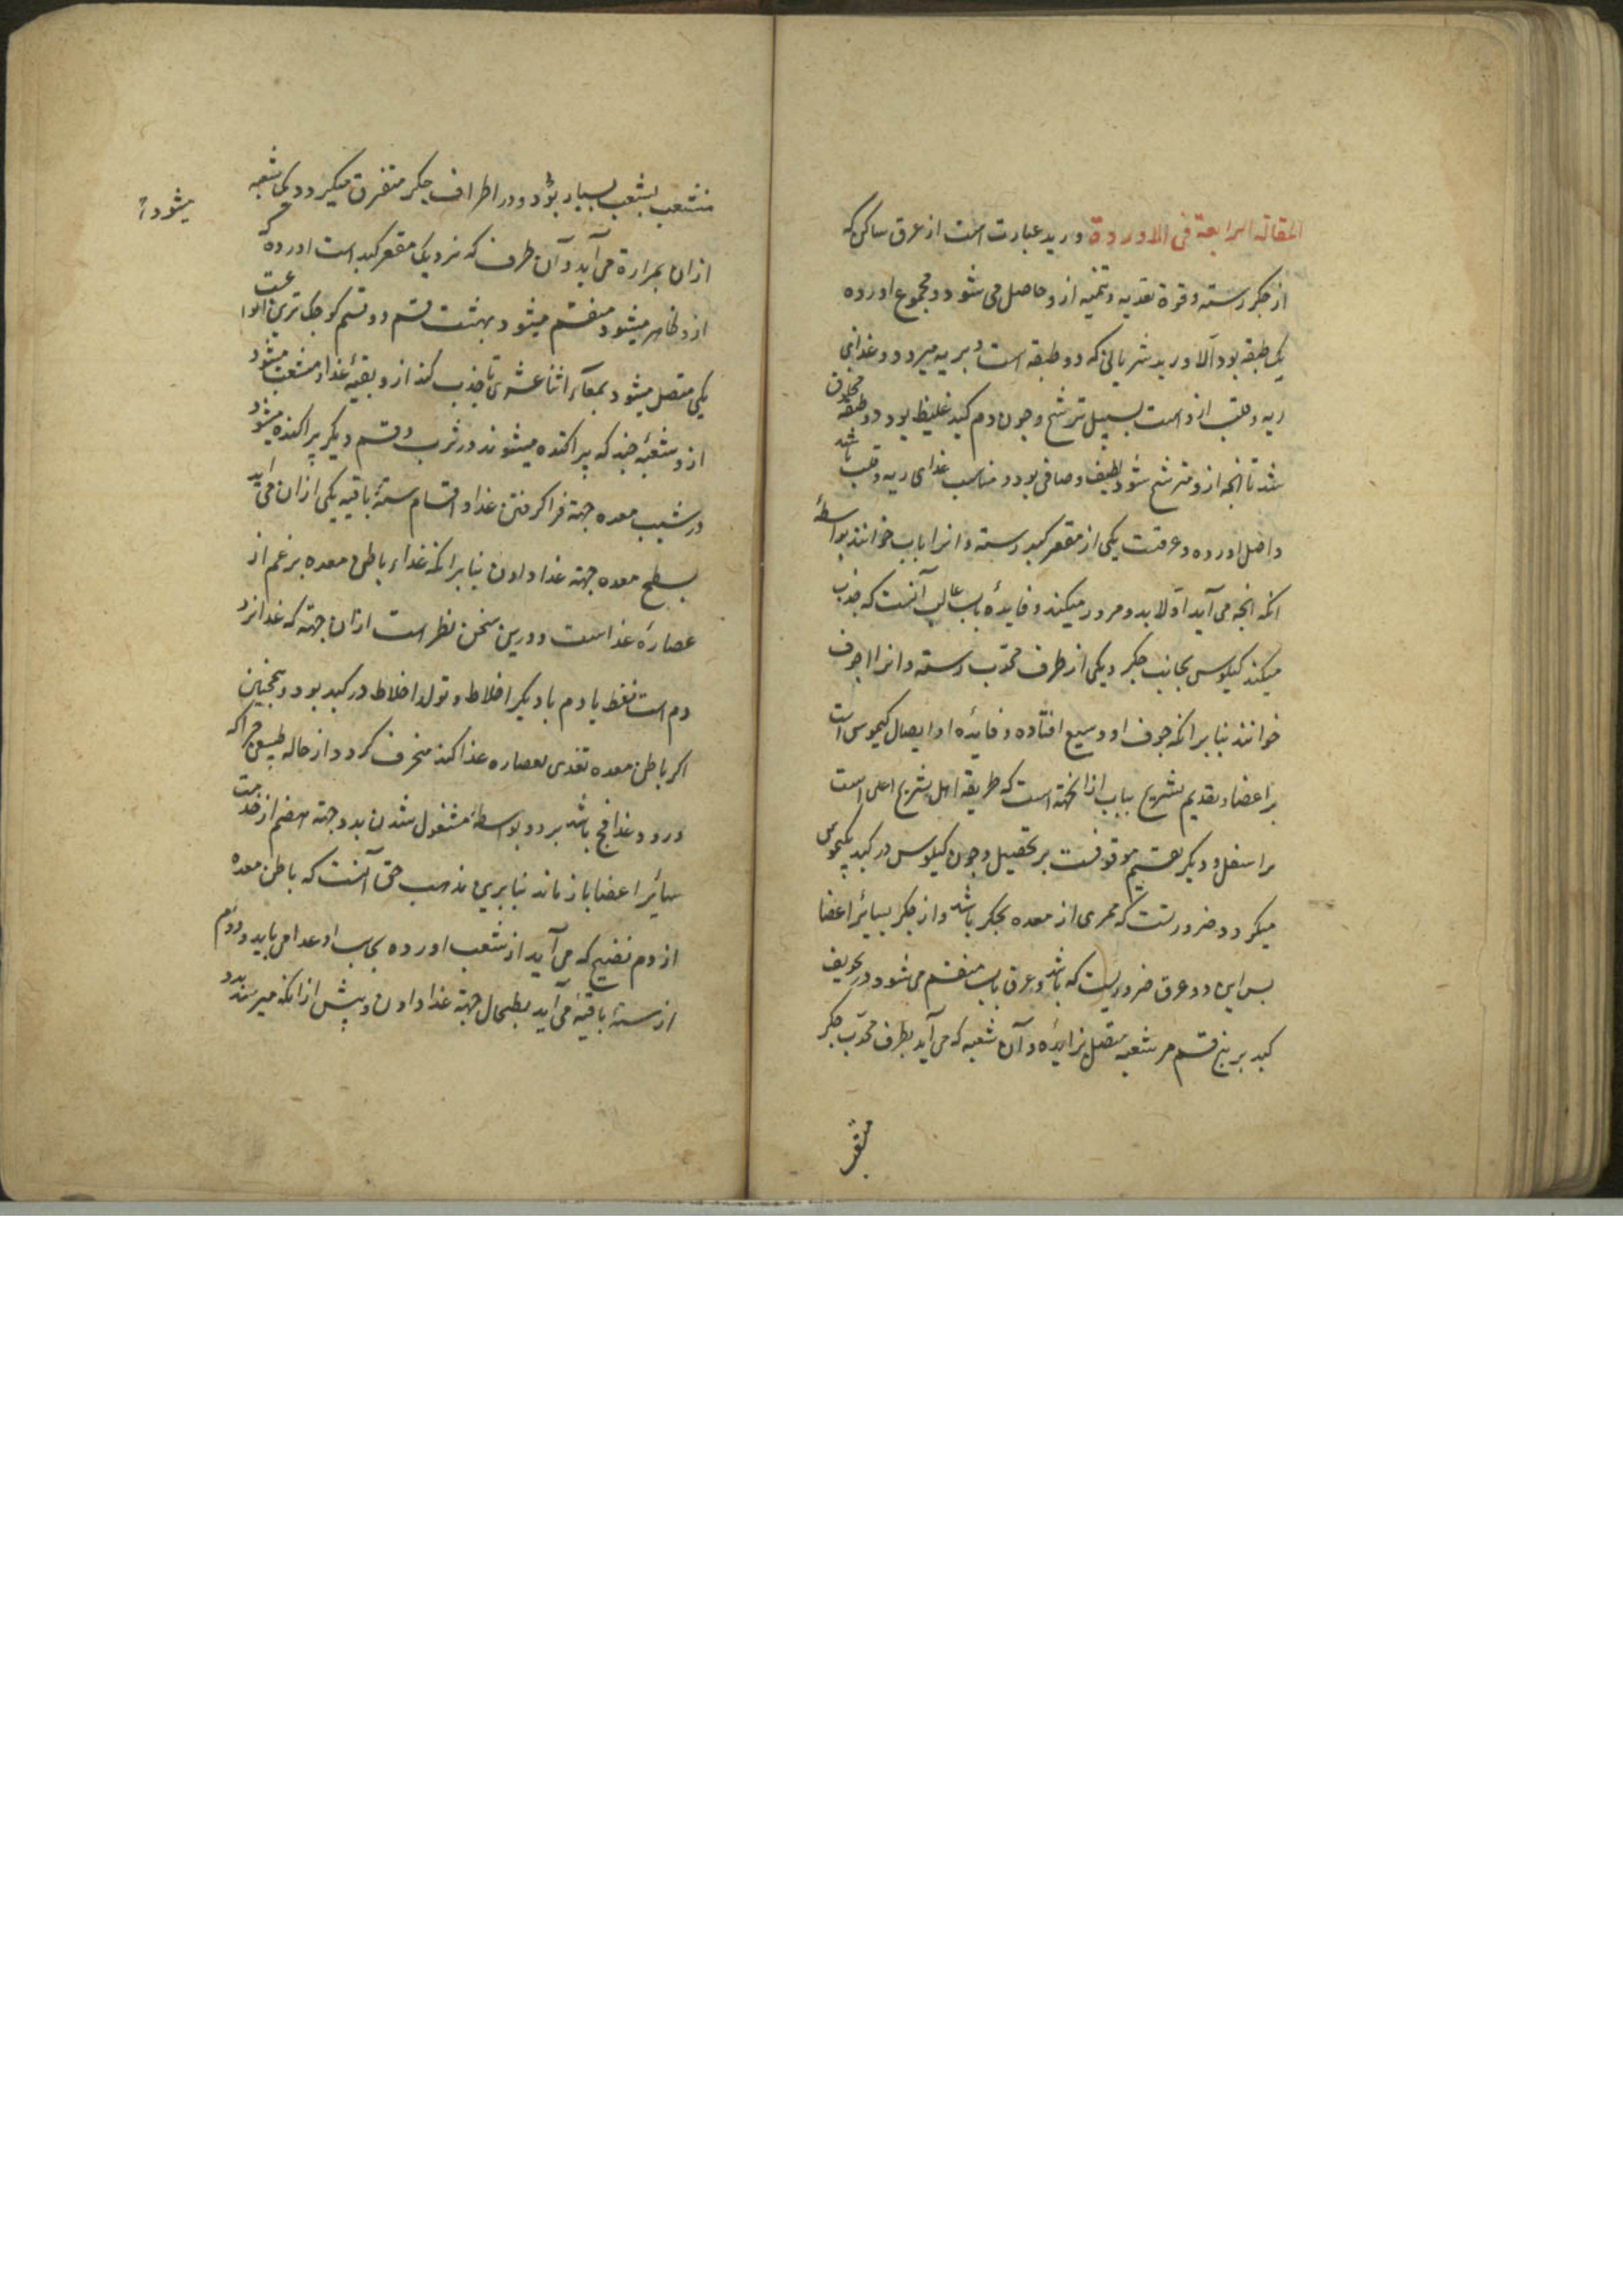 المقالة الرابعة فی الاوردة ورید عبارت است از عرق ساکن که
از جکر رسته و قوة تغدیه و تنمیه ازو حاصل می شود و مجموع اورده
یک طبقه بود الا ورید شریانی که دو طبقه است و بریه میرود و غذای
ریه و قلب ازو است بسبیل ترشح و چون دم کبد غلیظ بود دو طبقه مخلوق
شد تا انجه ازو مترشح شود لطیف و صافی بود و مناسب غذای ریه و قلب باشد
و اصل اورده دو عرقست یکی از مقعر کبد رسته و انرا باب خوانند بواسطهٔ
انکه انجه می آید اولا بدو مرور میکند و فایدهٔ باب غالب آنست که جذب
میکند کیلوس بجانب جکر و یکی از طرف محدب رسته و انرا اجوف
خوانند بنا برانکه جوف او وسیع افتاده و فائده او ایصال کیموس است
بر اعضا و تقدیم تشریح باب از انجهة است که طریقه اهل تشریح اعلی است
بر اسفل و دیکر تقسیم موقوفست بر تحصیل و چون کیلوس در کبد کیموس
میکردد ضرورتست که مجری از معده بجکر باشد و از جکر بسائر اعضا
بس این دو عرق ضروریست که باشد و عرق باب منقسم می شود در تجویف
کبد بر پنج قسم هر شعبه متصل بزایده و آن شعبه که می آید بطرف محدب جکر
منشعب
منشعب بشعب بسیار بود و در اطراف جکر متفرق میکردد یک شعبه
ازان بمرارة می آید و آن طرف که نزدیک مقعر کبد است اورده
ازو ظاهر میشود و منقسم میشود بهشت قسم دو قسم کوجک ترین
یکی متصل میشود بمعاء اثنا عشری تا جذب کند ازو بقیهٔ غذا و منشعب میشود
ازو شعبهٔ جند که پراکنده میشوند در ثرب و قسم دیکر پراکنده میشود
در شیب معده جهة فرا کرفتن غذا و اقسام ستهٔ باقیه یکی ازان می آید
بسطح معده جهة غذا دادن بنا برانکه غذاء باطن معده بزعم از
عصارهٔ غذا است و درین سخن نظر است ازان جهة که غذا نزد
دم است فقط یا دم با دیکر اخلاط و تولد اخلاط در کبد بود و همجنین
اکر باطن معده تغدی بعصاره غذا کند منحرف کردد از حاله طبیعی جراکه
ورود غذا فج باشد برو و بواسطهٔ مشغول شدن بدو جهة هضم از خدمت
سائر اعضا باز ماند بنا برین مذهب حق آنست که باطن معده
از دم نضیج که می آید از شعب اورده بجانب او غذا می یابد و دوم
از ستهٔ باقیه می آید بطحال جهة غذا دادن و پیش ازانکه میرسد بدو